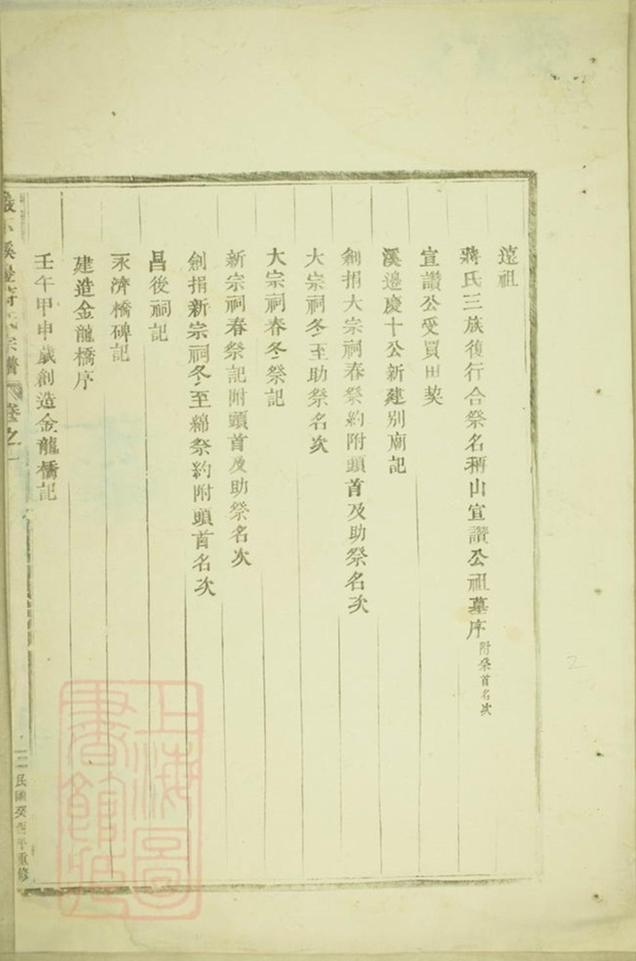 遠祖
蔣氏三族復行合祭名稱山宣讚公祖墓序附祭首名次
宣讚公受買田契
溪邉慶十公新建别廟記
創捐大宗祠春祭約附頭首及助祭名次
大宗祠冬至助祭名次
大宗祠春冬祭記
新宗祠春祭記附頭首及助祭名次
創捐新宗祠冬至綿祭約附頭首名次
昌後祠記
永濟橋碑記
建造金龍橋序
壬午甲申歲創造金龍橋記
溪 宗譜 卷之一
民國癸酉年重修
上海圖書館藏